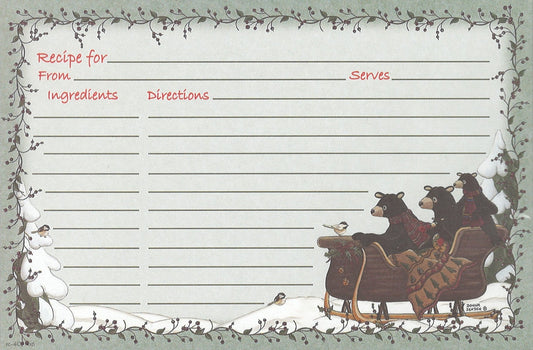 Recipe for
From Serves
Ingredients Directions